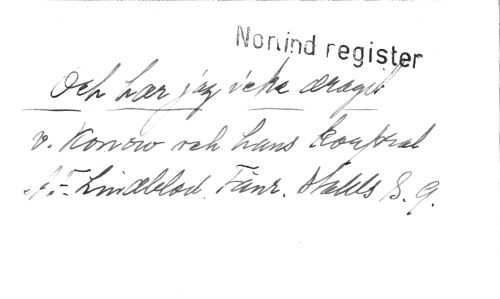 Norlind register
Och har jag icke dragit
v. Konow och hans korpral
Lindblod. Fänr. Ståls S. 9.